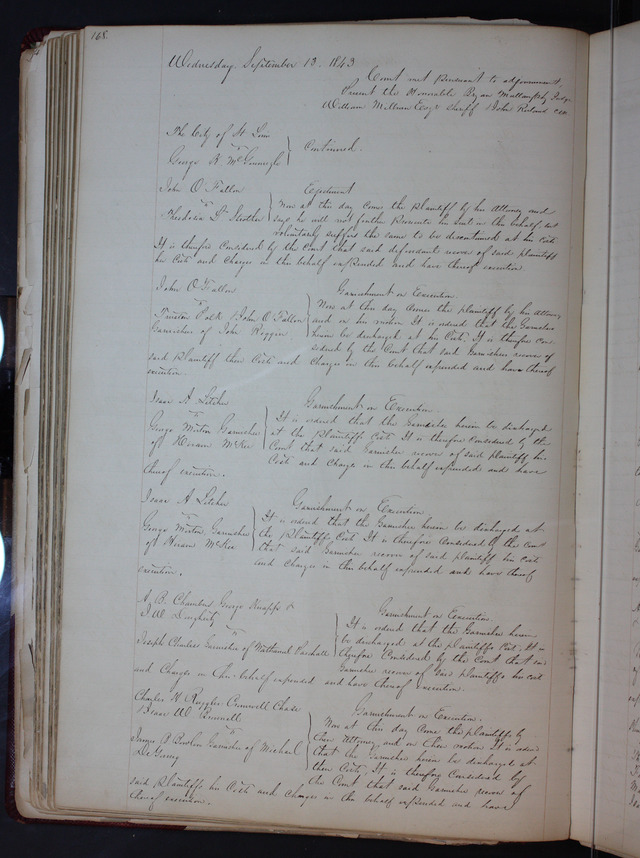 168.
Wednesday, September 13. 1843
Court met pursuant to adjournment.
Present the Honorable Bryan Mullanphy Judge
William Milburn Esqr Sheriff & John Ruland Clk
The City of St Louis
vs
George R McGunnegle } Continued.
John O Fallon Ejectment
vs
Now at this day comes the Plaintiff by his Attorney and
Theodosia L Strother } says he will not further Prosecute his suit in this behalf but
voluntarily suffers the same to be discontinued at his Cost
It is therefore Considered by the Court that said defendant recover of said plaintiff
her Costs and Charges in this behalf expended and have thereof execution
John O Fallon Garnishment on Execution
vs
Now at this day Comes the plaintiff by his Attorney
Trusten Polk & John O Fallon } and on his motion It is ordered that the Garnishees
Garnishees of John Roggin herein be discharged at his Cost. It is therefore con-
sidered by the Court that said Garnishees recover of
said plaintiff their Costs and Charges in this behalf expended and have thereof
execution
Isaac A Letcher Garnishment on Execution
vs
It is ordered that the Garnishee herein be discharged
George Morton Garnishee } at the plaintiffs Cost It is therefore Considered by the
of Hiram McKee Court that said Garnishee recover of said plaintiff his
Costs and Charges in this behalf expended and have
thereof execution.
Isaac A Letcher Garnishment on Execution
vs
It is ordered that the Garnishee herein be discharged at
George Morton, Garnishee } the Plaintiffs Cost It is therefore Considered by the Court
of Hiram McKee that said Garnishee recover of said plaintiff his costs
and Charges in this behalf expended and have thereof
execution.
A. B. Chambers George Knapp &
J W Dougherty Garnishment on Execution
vs
It is ordered that the Garnishee herein
Joseph Charless Garnishee of Nathaniel Paschall } be discharged at the plaintiffs Cost. It is
therefore Considered by the Court that said
Garnishee recover of said Plaintiffs his cost
and Charges in this behalf expended and have thereof execution.
Charles H Cromwell Chase
& Isaac W Garnishment on Execution.
vs
Now at this day Come the plaintiffs by
James B Bowlin Garnishee of Michael } their Attorney and on their motion It is ordered
De Young that the Garnishee herein be discharged at
their Costs. It is therefore Considered by
the Court that said Garnishee recover of
said plaintiffs his Costs and Charges in this behalf expended and have
thereof execution.